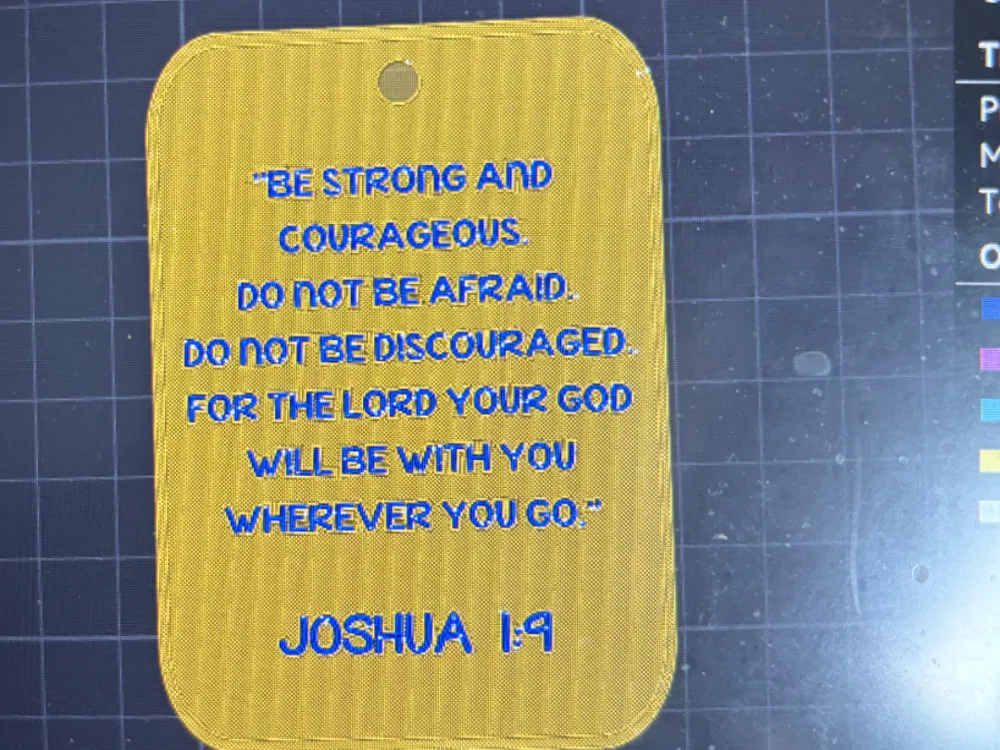 "BE STRONG AND
COURAGEOUS.
DO NOT BE AFRAID.
DO NOT BE DISCOURAGED.
FOR THE LORD YOUR GOD
WILL BE WITH YOU
WHEREVER YOU GO."
JOSHUA 1:9